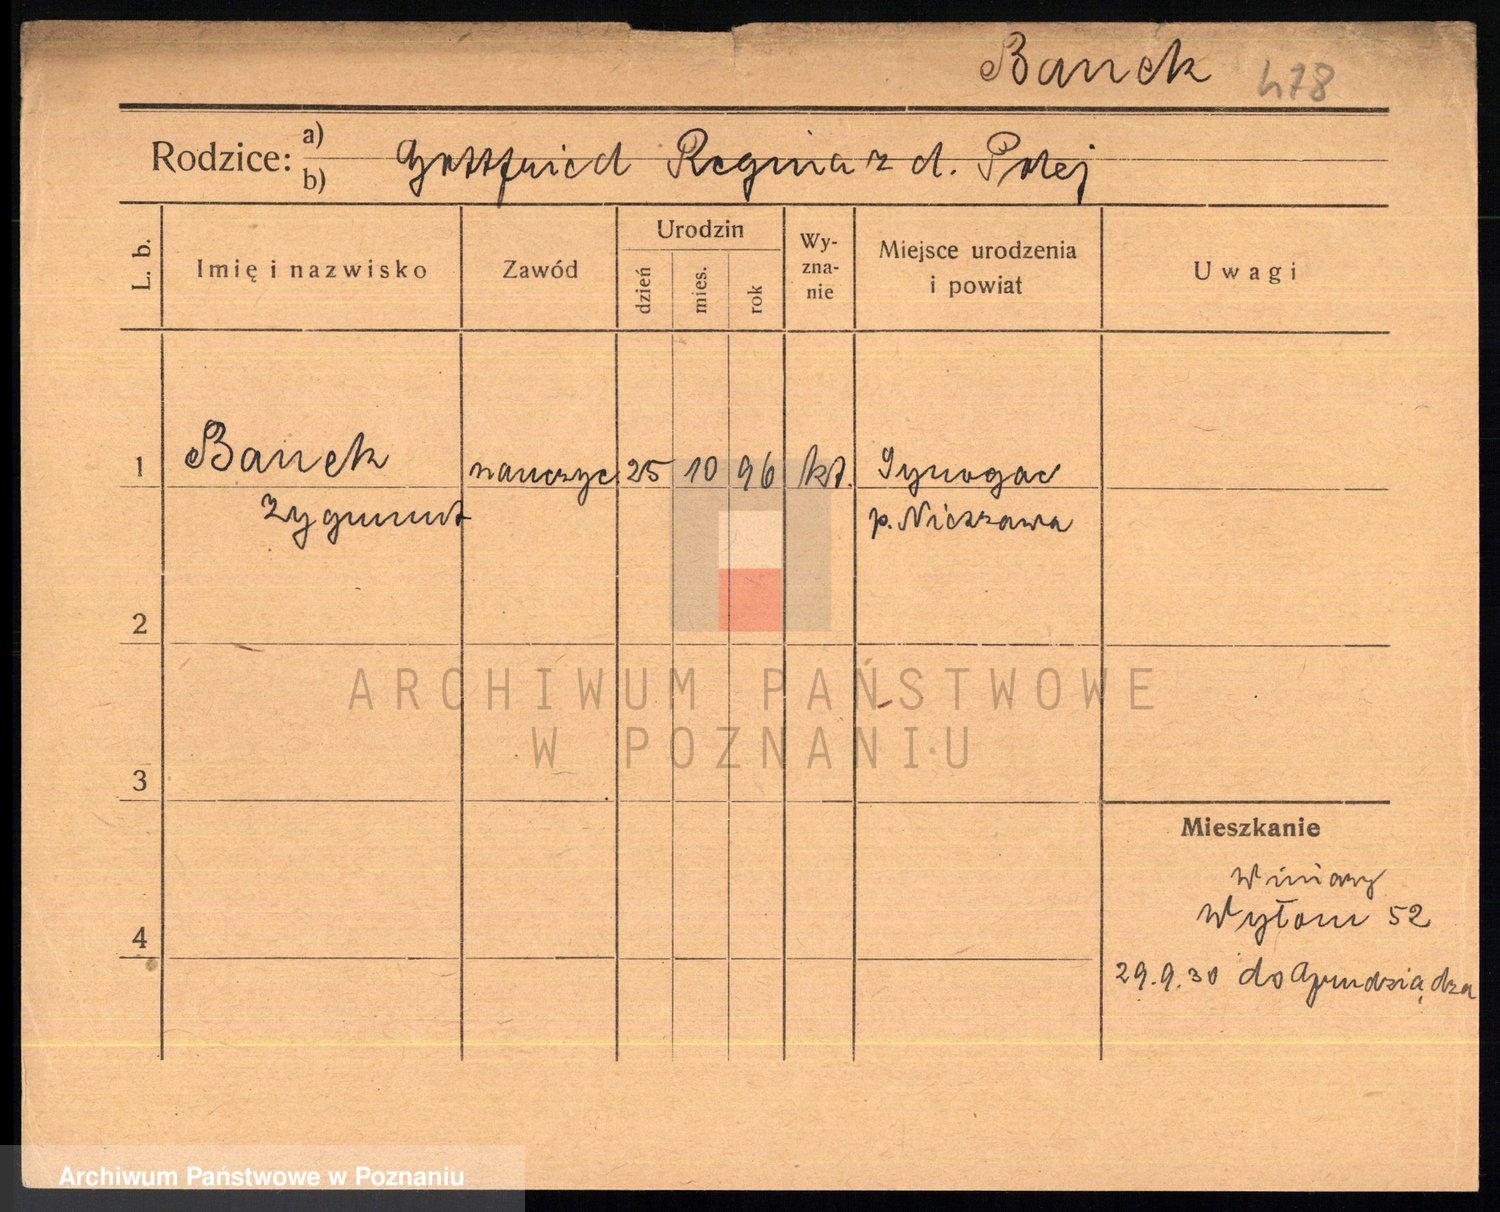 Banek 478
Rodzice: a) b) Gottfried Regina z d. Polej
L. b. Imię i nazwisko Zawód Urodzin dzień mies. rok Wy-zna-nie Miejsce urodzenia i powiat Uwagi
1 Banek nauczyc 25 10 96 kt. Synogac
Zygmunt p. Nieszawa
2
ARCHIWUM PAŃSTWOWE
W POZNANIU
3
Mieszkanie
Winiary
Wyłom 52
4
29.9.30 do Grudziądza
Archiwum Państwowe w Poznaniu